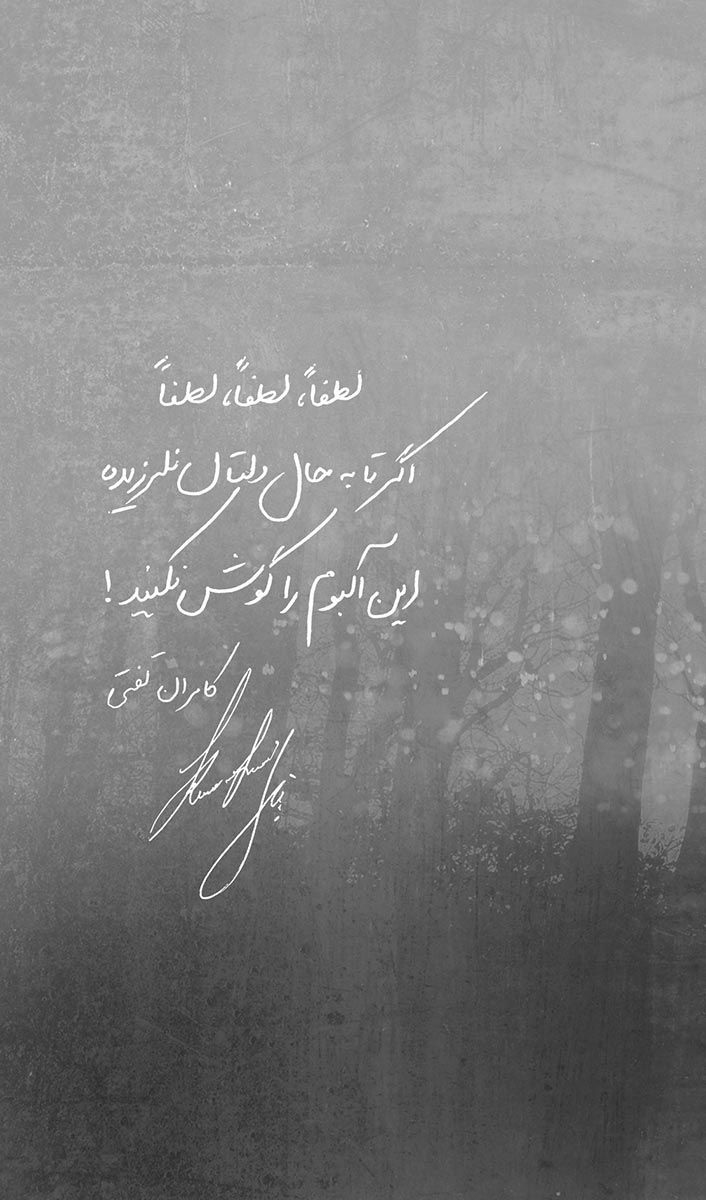 لطفاً، لطفاً، لطفاً
اگر تا به حال دلتان نلرزیده
این آلبوم را گوش نکنید!
کامران تفتی